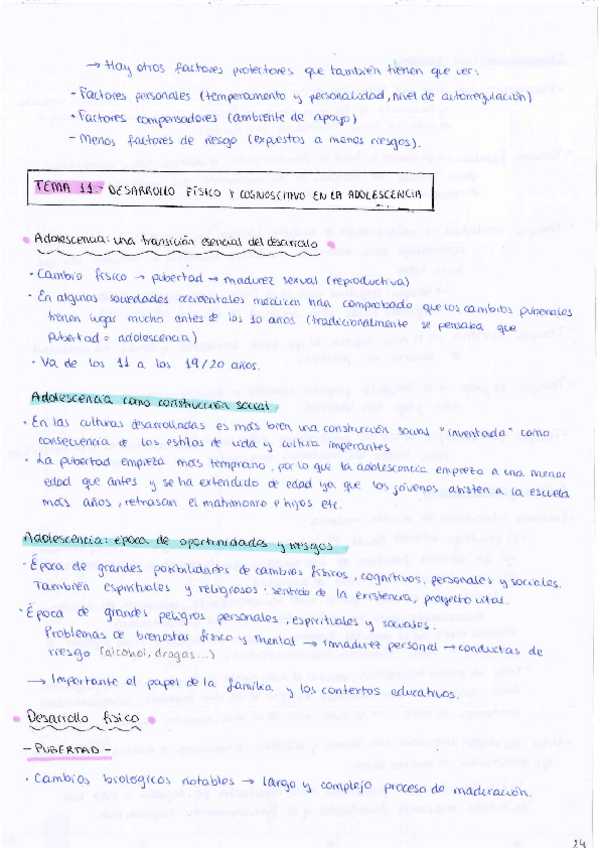 → Hay otros factores protectores que también tienen que ver:
- Factores personales (temperamento y personalidad, nivel de autorregulación)
- Factores compensadores (ambiente de apoyo)
- Menos factores de riesgo (expuestos a menos riesgos).
TEMA 11 - DESARROLLO FÍSICO Y COGNOSCITIVO EN LA ADOLESCENCIA
• Adolescencia: una transición esencial del desarrollo •
· Cambio físico → pubertad → madurez sexual (reproductiva)
· En algunas sociedades occidentales médicas han comprobado que los cambios puberales
tienen lugar mucho antes de los 10 años (tradicionalmente se pensaba que
pubertad = adolescencia)
· Va de los 11 a los 19/20 años.
Adolescencia como construcción social
· En las culturas desarrolladas es más bien una construcción social "inventada" como
consecuencia de los estilos de vida y cultura imperantes
· La pubertad empieza más temprano, por lo que la adolescencia empieza a una menor
edad que antes y se ha extendido de edad ya que los jóvenes asisten a la escuela
más años, retrasan el matrimonio e hijos etc.
Adolescencia: época de oportunidades y riesgos
· Época de grandes posibilidades de cambios físicos, cognitivos, personales y sociales.
También espirituales y religiosos: sentido de la existencia, proyecto vital.
· Época de grandes peligros personales, espirituales y sociales.
Problemas de bienestar físico y mental → inmadurez personal → conductas de
riesgo (alcohol, drogas...)
→ Importante el papel de la familia y los contextos educativos.
• Desarrollo físico •
- PUBERTAD -
· Cambios biológicos notables → largo y complejo proceso de maduración.
24